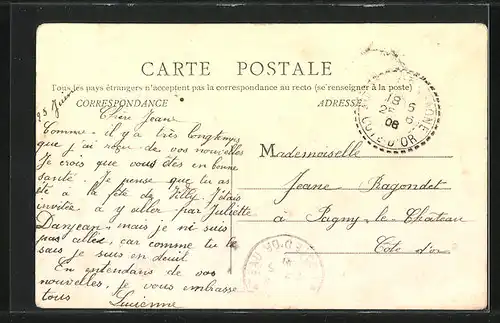 CARTE POSTALE
Tous les pays étrangers n'acceptent pas la correspondance au recto (se renseigner à la poste)
CORRESPONDANCE
ADRESSE
25 Juin
Chère Jeane
Comme il y a très longtemps
que j'ai reçu de vos nouvelles
Je crois que vous êtes en bonne
santé. Je pense que tu as
été a la fête de Tilly. J'étais
invitée a y aller par Juliette
Danjean, mais je ni suis
pas allée, car comme tu le
sais je suis en deuil.
En entendans de vos
nouvelles, je vous embrasse
tous Lucienne
Mademoiselle
Jeane Ragondet
a Pagny-le-Château
Côte d'or
18 6
25 6
08
COTE D'OR